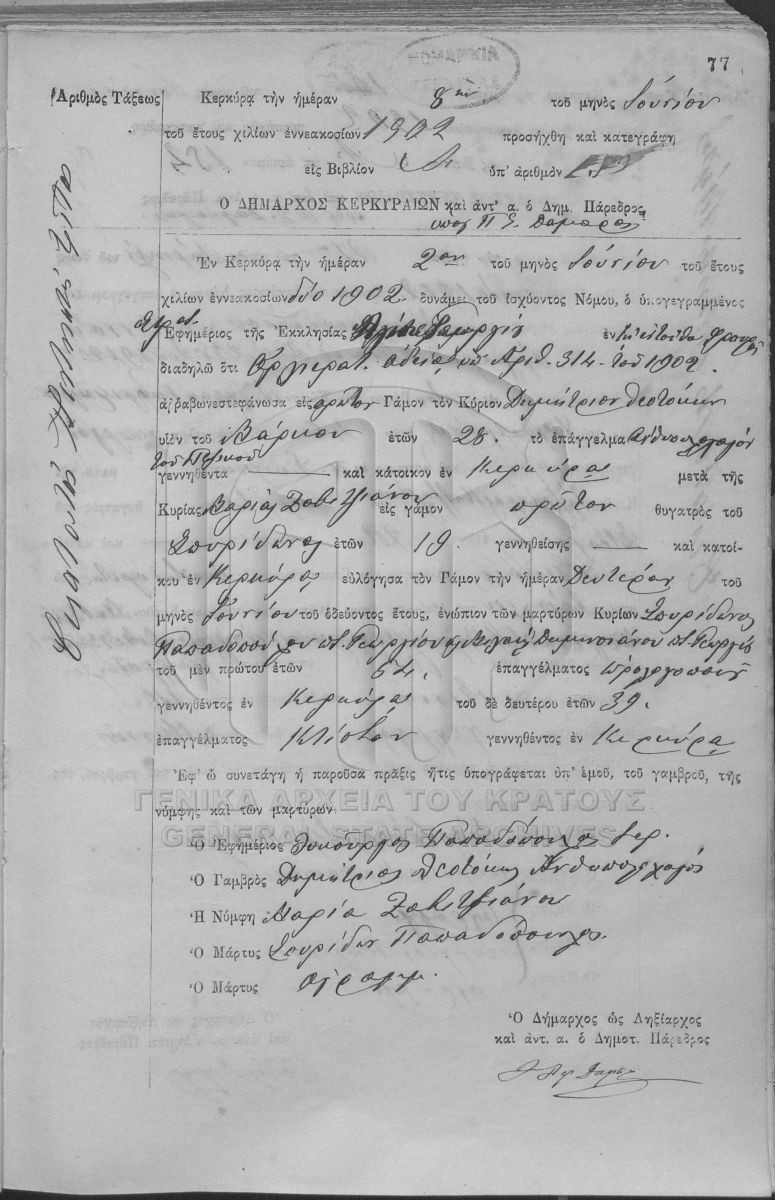 77
Ἀριθμὸς Τάξεως
Κερκύρᾳ τὴν ἡμέραν 8ην τοῦ μηνὸς Ἰουνίου
τοῦ ἔτους χιλίων ἐννεακοσίων 1902 προσήχθη καὶ κατεγράφη
εἰς Βιβλίον ὑπ' ἀριθμὸν
Ὁ ΔΗΜΑΡΧΟΣ ΚΕΡΚΥΡΑΙΩΝ καὶ ἀντ' α. ὁ Δημ. Πάρεδρος
Ἑκατοστὸς
Ἐν Κερκύρᾳ τὴν ἡμέραν 2αν τοῦ μηνὸς Ἰουνίου τοῦ ἔτους
χιλίων ἐννεακοσίων δύο 1902. δυνάμει τοῦ ἰσχύοντος Νόμου, ὁ ὑπογεγραμμένος
Στρατ.
Ἐφημέριος τῆς Ἐκκλησίας Ἁγίου Γεωργίου ἐν
διαδηλῶ ὅτι Ἀρχιερατ. ἀδείᾳ ὑπ' Ἀριθ. 314 τοῦ 1902.
ἀῤῥαβωνεστεφάνωσα εἰς πρῶτον Γάμον τὸν Κύριον Δημήτριον Θεοτόκην
υἱὸν τοῦ Μάρκου ἐτῶν 28. τὸ ἐπάγγελμα Ἀνθυπολοχαγὸν
τοῦ Πεζικοῦ
γεννηθέντα καὶ κάτοικον ἐν Κερκύρᾳ μετὰ τῆς
Κυρίας Μαρίας Ζαβιτζιάνου εἰς γάμον πρῶτον θυγατρὸς τοῦ
Σπυρίδωνος ἐτῶν 19. γεννηθείσης καὶ κατοί-
κου ἐν Κερκύρᾳ εὐλόγησα τὸν Γάμον τὴν ἡμέραν Δευτέραν τοῦ
μηνὸς Ἰουνίου τοῦ ὁδεύοντος ἔτους, ἐνώπιον τῶν μαρτύρων Κυρίων Σπυρίδωνος
Παπαδοπούλου π. Γεωργίου π. Γεωργίου
τοῦ μὲν πρώτου ἐτῶν 54. ἐπαγγέλματος ὡρολογοποιοῦ
γεννηθέντος ἐν Κερκύρᾳ τοῦ δὲ δευτέρου ἐτῶν 39.
ἐπαγγέλματος γεννηθέντος ἐν Κερκύρᾳ
Ἐφ' ᾧ συνετάγη ἡ παροῦσα πρᾶξις ἥτις ὑπογράφεται ὑπ' ἐμοῦ, τοῦ γαμβροῦ, τῆς
νύμφης καὶ τῶν μαρτύρων.
ΓΕΝΙΚΑ ΑΡΧΕΙΑ ΤΟΥ ΚΡΑΤΟΥΣ
GENERAL STATE ARCHIVES
Ὁ Ἐφημέριος Λυκοῦργος Παπαδόπουλος ἱερ.
Ὁ Γαμβρὸς Δημήτριος Θεοτόκης Ἀνθυπολοχαγός
Ἡ Νύμφη Μαρία Ζαβιτζιάνου
Ὁ Μάρτυς Σπυρίδων Παπαδόπουλος
Ὁ Μάρτυς ἀγράμμ.
Ὁ Δήμαρχος ὡς Ληξίαρχος
καὶ ἀντ. α. ὁ Δημοτ. Πάρεδρος